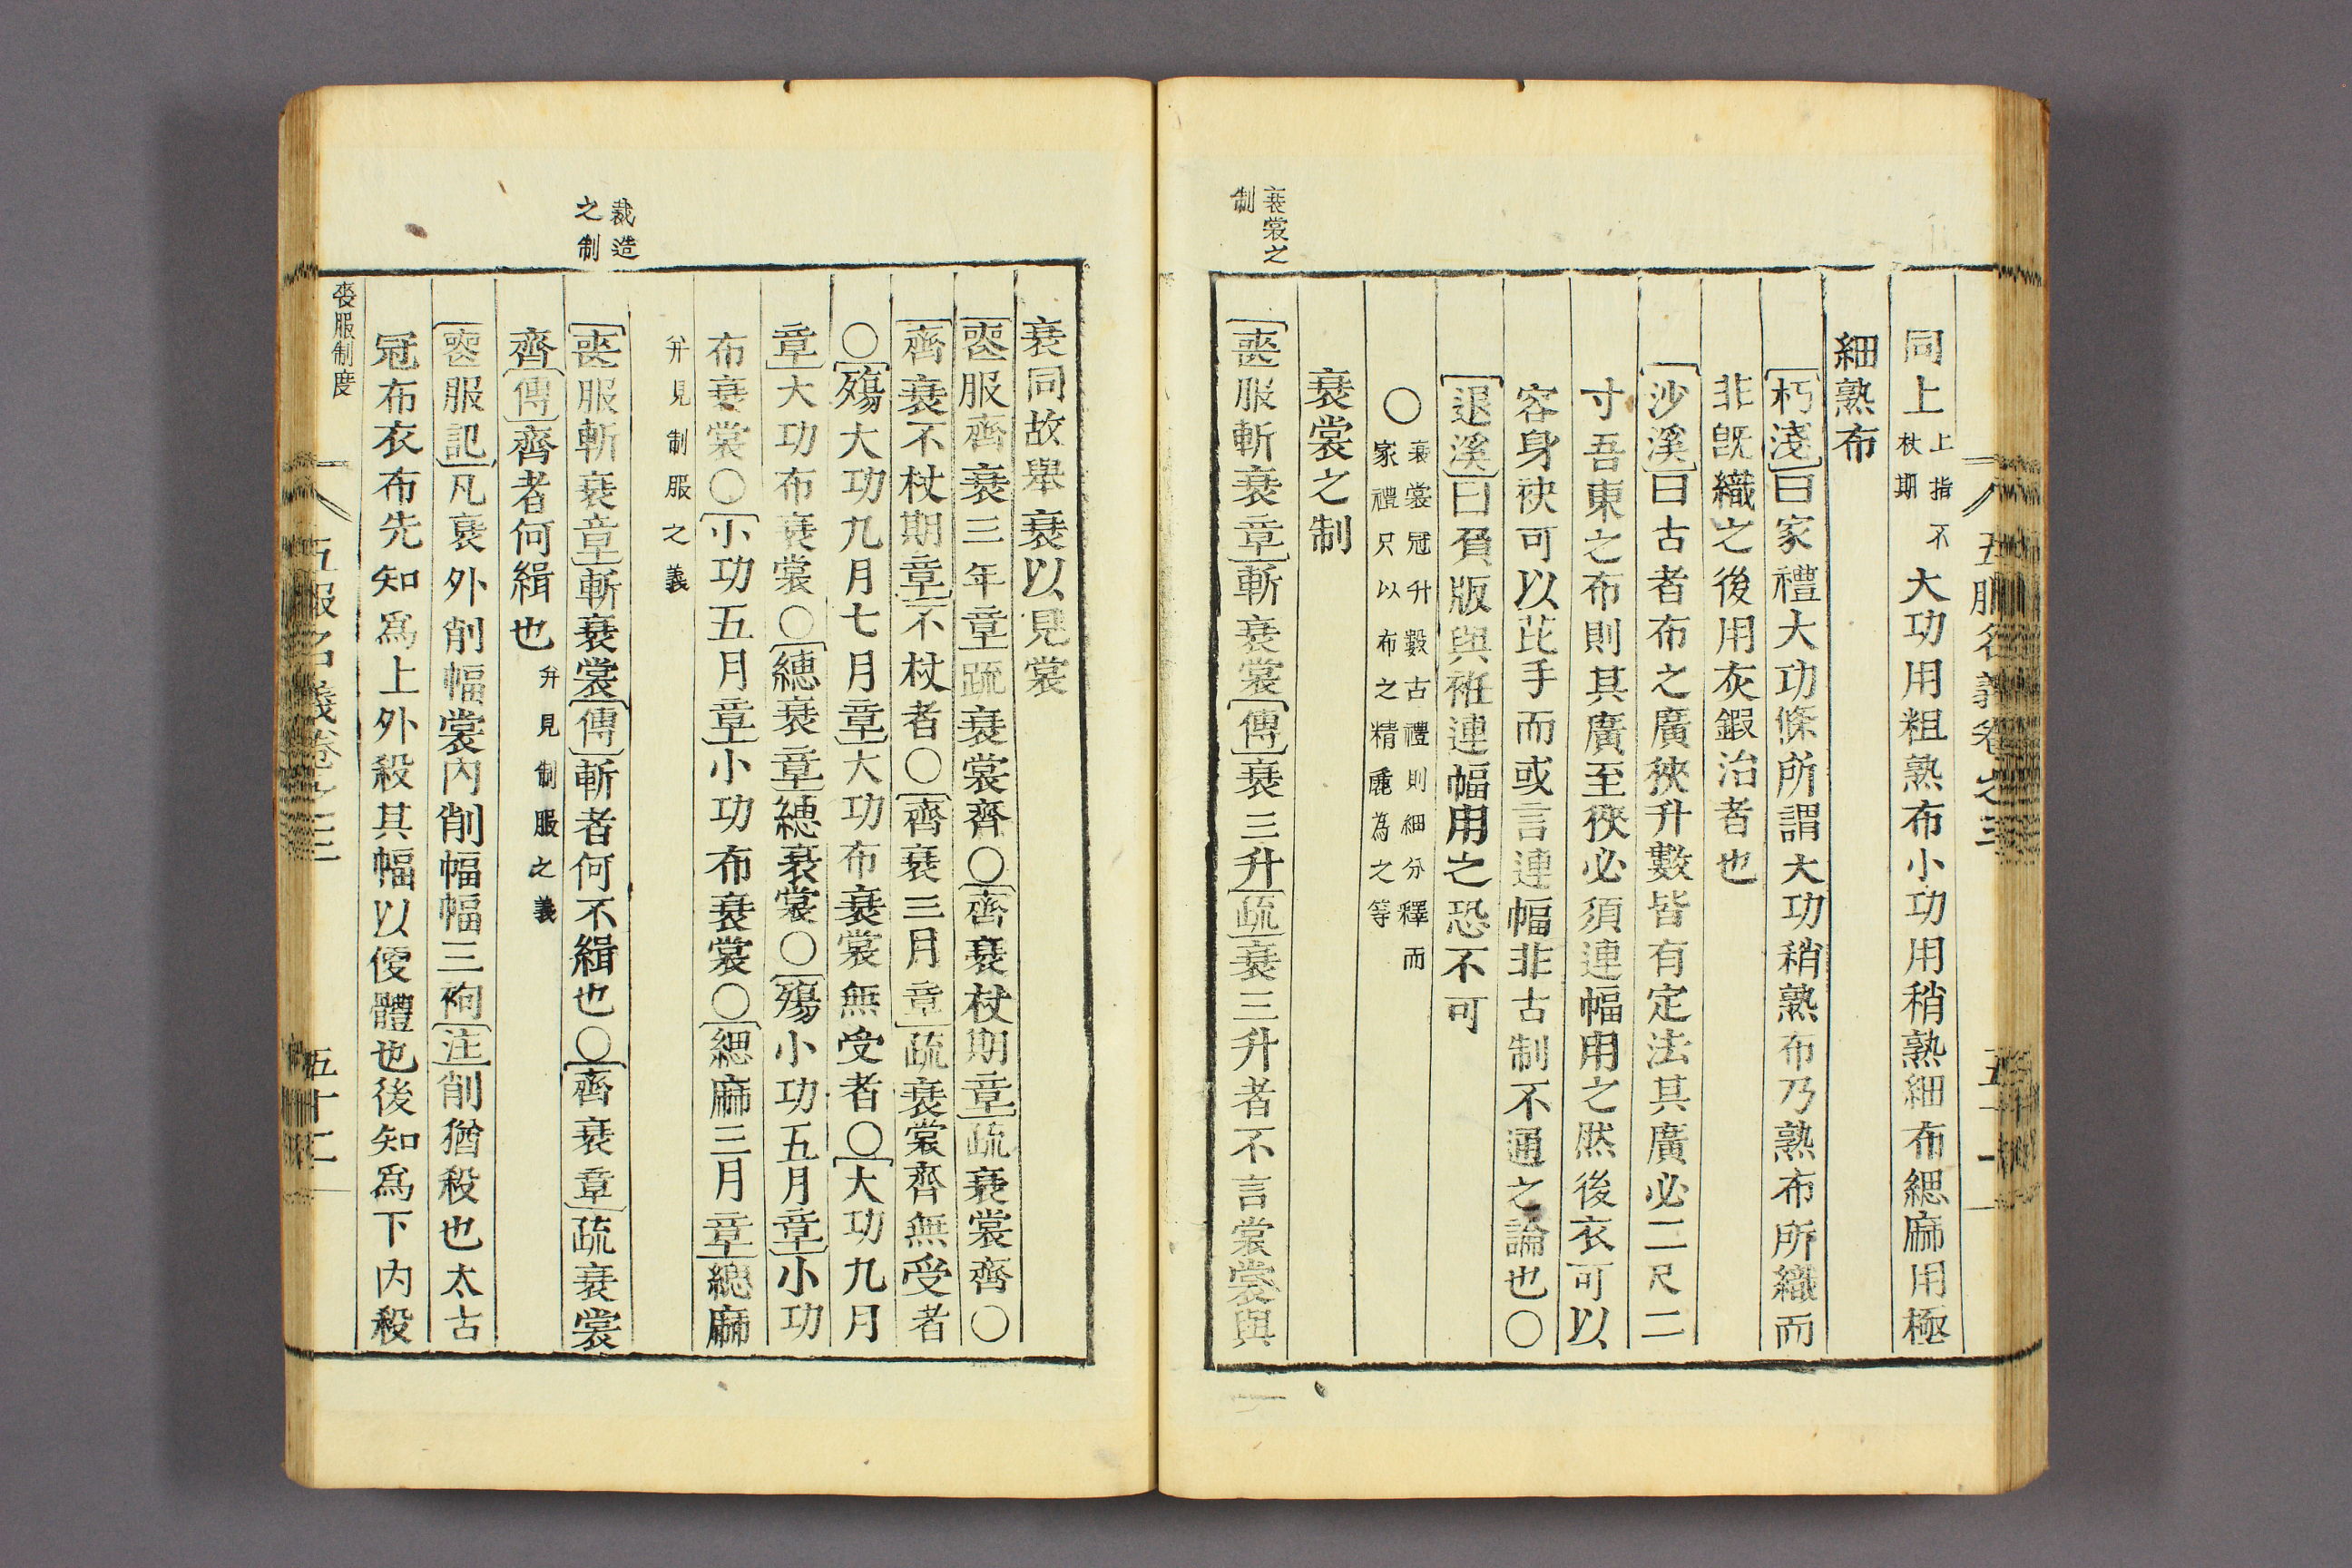 五服名義卷之三
五十一
同上上指不杖期大功用粗熟布小功用稍熟細布緦麻用極
細熟布
朽淺曰家禮大功條所謂大功稍熟布乃熟布所織而
非旣織之後用灰鍜治者也
沙溪曰古者布之廣狹升數皆有定法其廣必二尺二
寸吾東之布則其廣至狹必須連幅用之然後衣可以
容身袂可以芘手而或言連幅非古制不通之論也○
退溪曰負版與衽連幅用之恐不可
○衰裳冠升數古禮則細分釋而家禮只以布之精麤為之等
衰裳之制
衰裳之制
喪服斬衰章斬衰裳傳衰三升疏衰三升者不言裳裳與
衰同故舉衰以見裳
喪服齊衰三年章疏衰裳齊○齊衰杖期章疏衰裳齊○
齊衰不杖期章不杖者○齊衰三月章疏衰裳齊無受者
○殤大功九月七月章大功布衰裳無受者○大功九月
章大功布衰裳○繐衰章繐衰裳○殤小功五月章小功
布衰裳○小功五月章小功布衰裳○緦麻三月章緦麻
幷見制服之義
裁造之制
喪服斬衰章斬衰裳傳斬者何不緝也○齊衰章疏衰裳
齊傳齊者何緝也幷見制服之義
喪服記凡衰外削幅裳內削幅幅三袧注削猶殺也太古
冠布衣布先知爲上外殺其幅以便體也後知爲下內殺
喪服制度
五服名義卷之三
五十二